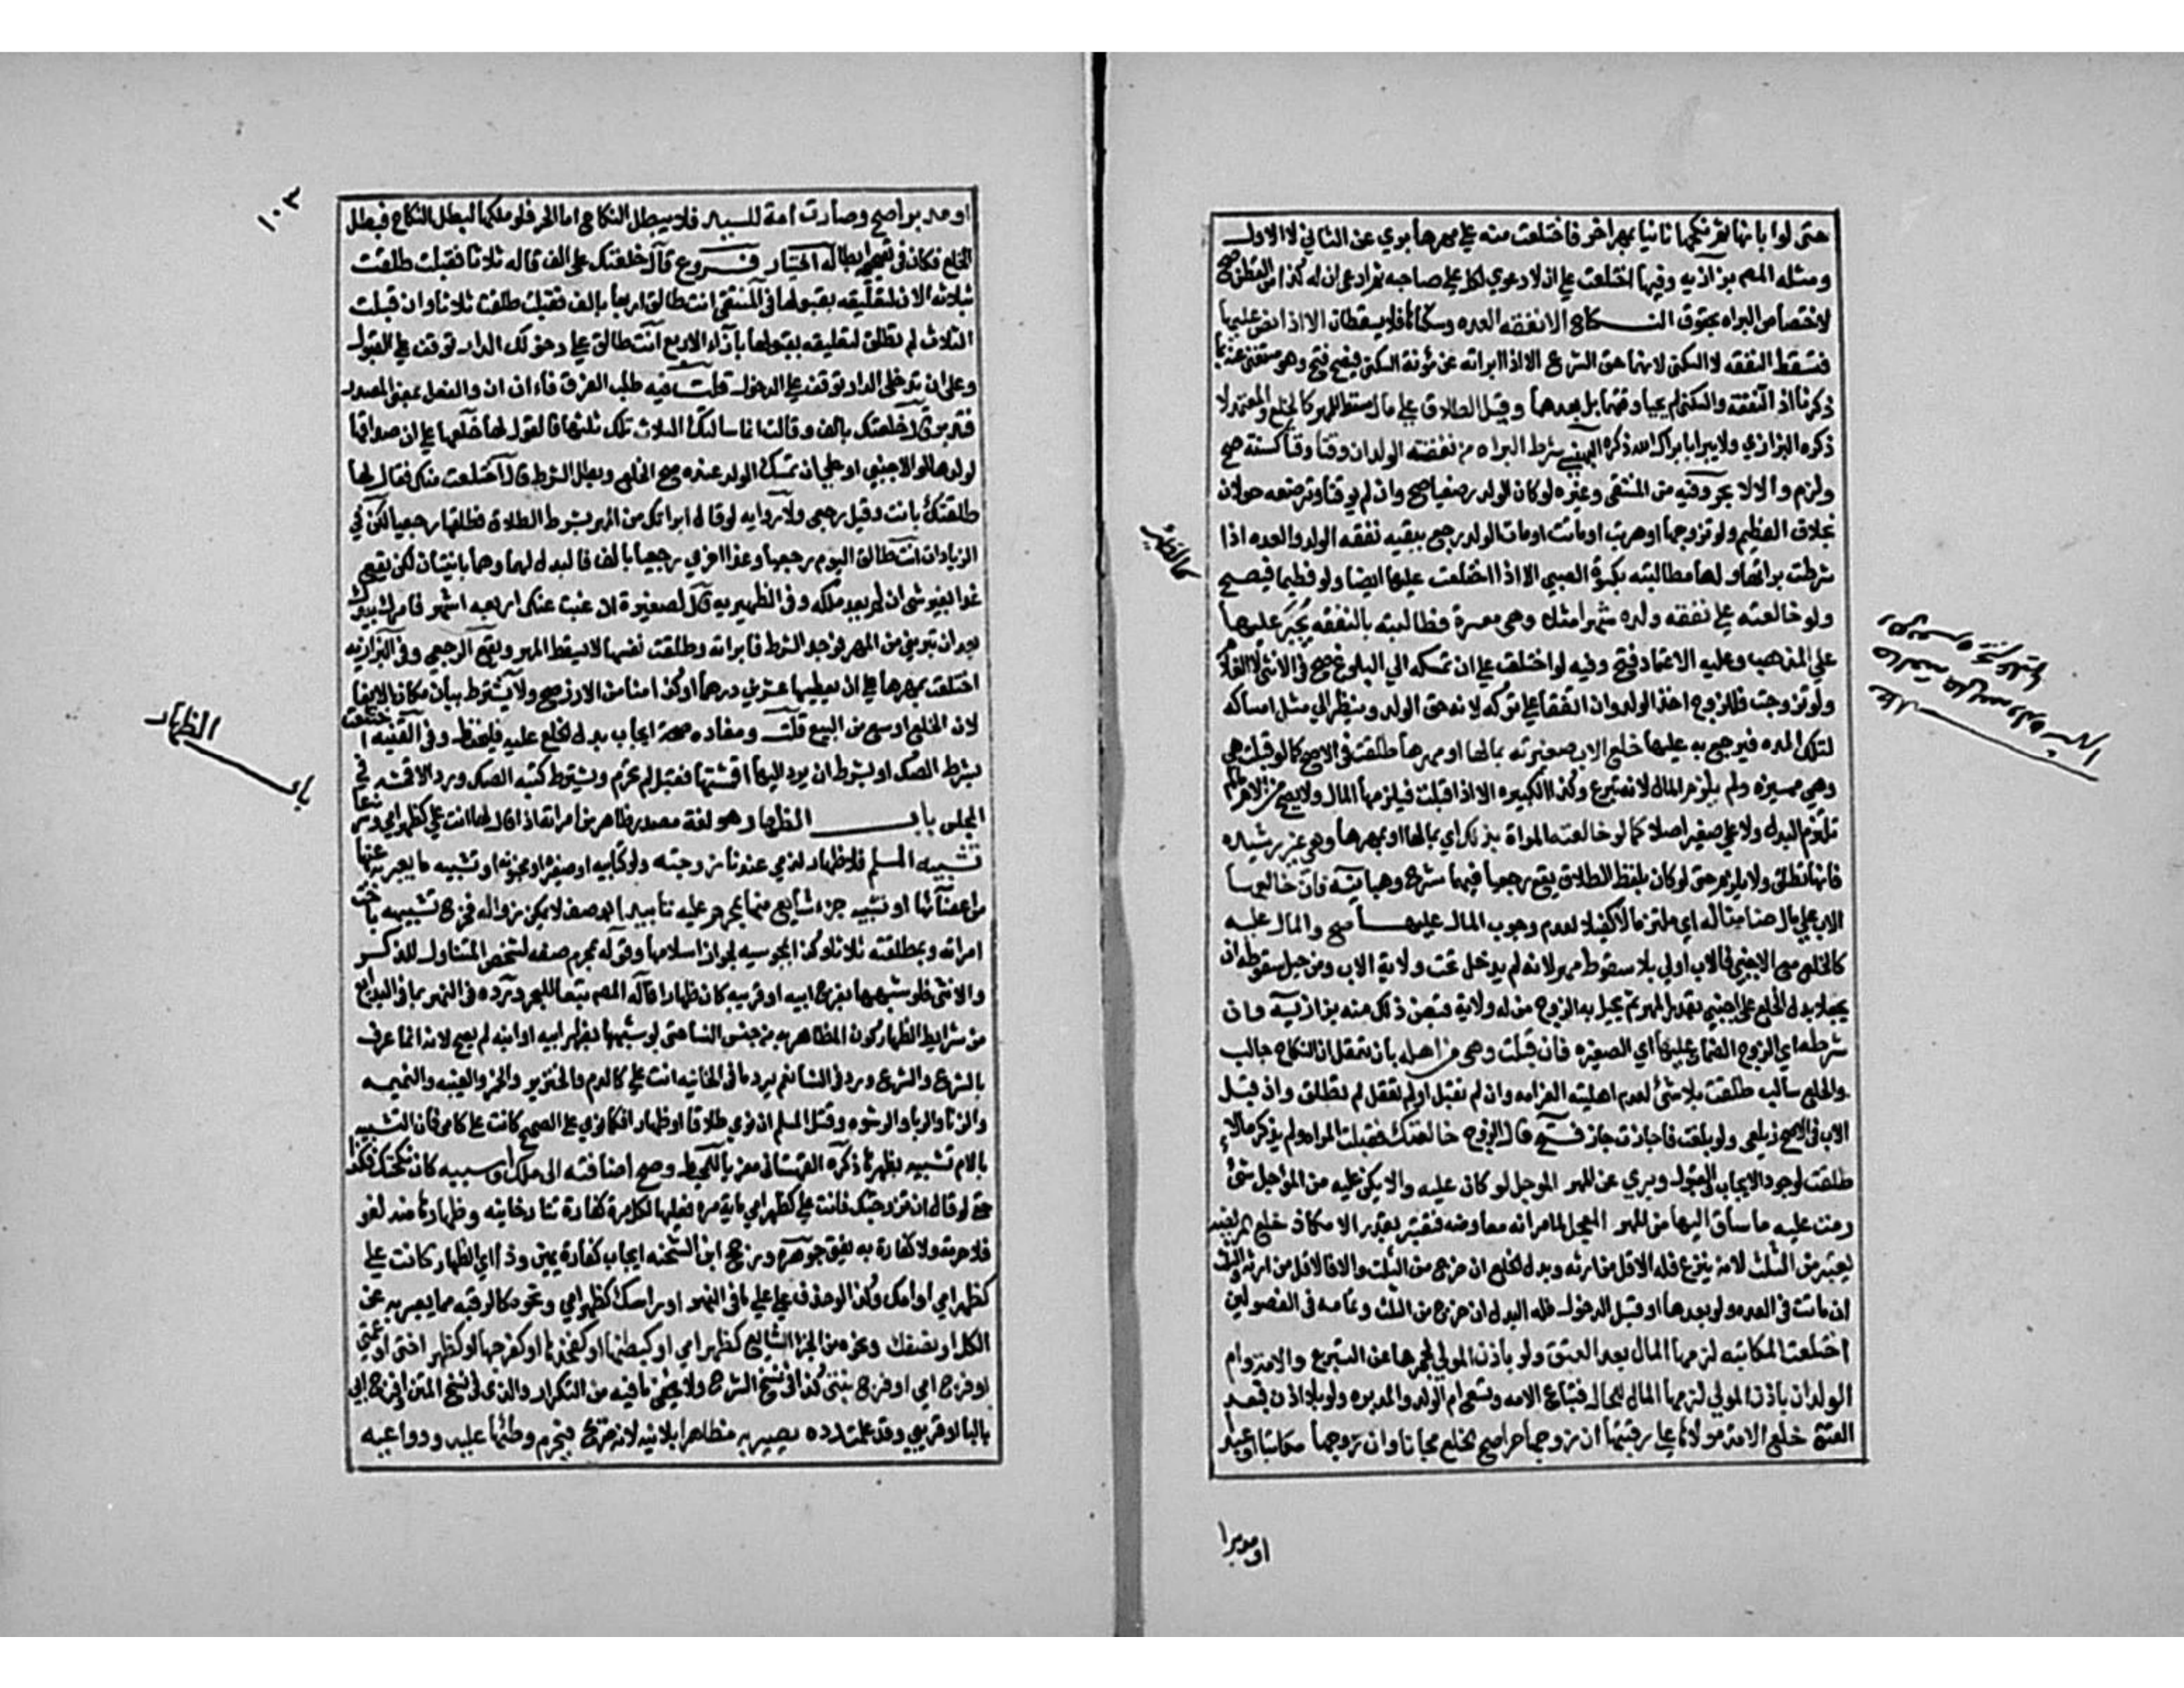 حتى لوا بانها ثم نكحها ثانيا بمهر اخر فاختلعت منه على مهرها بري عن الثاني لا الاول
ومثله المتعه بزازيه وفيها اختلعت على ان لا دعوي لكل على صاحبه ثم ادعى ان له كذا من القطن صح
لاختصاص البراه بحقوق النكاح الا نفقه العده وسكناها فلا يسقطان الا اذا نص عليها
فتسقط النفقه لا السكنى لانها حق الشرع الا اذا ابراته عن مؤنة السكنى فيصح فتح وهو مستغنى عنه بما
ذكرنا اذ النفقه والسكنى لم يجبا وقتها بل بعدها وقيل الطلاق على مال مسقط للمهر كالخلع والمعتمد لا
ذكره البزازي ولا يبرا بابراك الله ذكره البهنسي شرط البراه من نفقته الولد ان وقتا وقتا كسنة صح
ولزم والا لا بحر وفيه من المنتقى وغيره لو كان الولد رضيعا صح وان لم يوقتا وترضعه حولان
بخلاف الفطيم ولو تزوجها او هربت او ماتت او مات الولد رجع ببقيه نفقه الولد والعده اذا
شرطت براتها ولها مطالبته بكسوة الصبي الا اذا اختلعت عليها ايضا ولو فطيما فيصح
ولو خالعته على نفقه ولده شهرا مثلا وهي معسرة فطالبته بالنفقه يجبر عليها
على المذهب وعليه الاعتماد فتح وفيه لو اختلعت على ان تمسكه الي البلوغ صح في الانثى لا الغلام
ولو تزوجت فللزوج اخذ الولد وان اتفقا على تركه لانه حق الولد وينظر الي مثل امساكه
لتلك المده فيرجع به عليها خلع الاب صغيرته بمالها او مهرها طلقت في الاصح كما لو قبلت هي
وهي مميزه ولم يلزم المال لانه تبرع وكذا الكبيره الا اذا قبلت فيلزمها المال ولا يصح من الام ما لم
تلتزم البدل ولا على صغير اصلا كما لو خالعته المراة بذلك اي بمالها او بمهرها وهي غير رشيده
فانها تطلق ولا يلزم حتى لو كان بلفظ الطلاق يقع رجعيا فيهما شرح وهبانيه فان خالعها
الاب على مال ضامنا له اي ملتزما لا كفيلا لعدم وجوب المال عليها صح والمال عليه
كالخلع مع الاجنبي فالاب اولي بلا سقوط مهر لانه لم يدخل تحت ولاية الاب ومن حيل سقوطه ان
يجعلا بدل الخلع على اجنبي بقدر المهر ثم يحيل به الزوج من له ولاية قبض ذلك منه بزازية وان
شرطه اي الزوج الضمان عليها اي الصغيره فان قبلت وهي من اهله بان تعقل ان النكاح جالب
والخلع سالب طلقت بلا شئ لعدم اهليته الغرامه وان لم تقبل او لم تعقل لم تطلق وان قبل
الاب في الاصح زيلعي ولو بلغت فاجازت جاز فتح قال الزوج خالعتك فقبلت المراه ولم يذكر مالا
طلقت لوجود الايجاب والقبول وبري عن المهر الموجل لو كان عليه والا يكن عليه من المؤجل شئ
ردت عليه ما ساق اليها من المهر المعجل لما مر انه معاوضه فتعتبر بقدر الامكان خلع المريضه
يعتبر من الثلث لانه تبرع فله الاقل من ارثه وبدل الخلع ان خرج من الثلث والا فالاقل من ارثه والثلث
ان ماتت في العده ولو بعدها او قبل الدخول فله البدل ان خرج من الثلث وتمامه في الفصولين
اختلعت المكاتبه لزمها المال بعد العتق ولو باذن المولي لحجرها عن التبرع والامه وام
الولد ان باذن المولي لزمها المال للحال فتباع الامه وتسعى ام الولد والمدبره ولو بلا اذن فبعد
العتق خلع الامه مولاها على رقبتها ان زوجها حرا صح الخلع مجانا وان زوجها مكاتبا او عبدا
او مدبرا
كالفطير
او مدبر صح وصارت امة للسيد فلا يبطل النكاح اما الحر فلو ملكها لبطل النكاح فبطل
الخلع فكان في تصحيحه ابطاله اختيار فروع قال خلعتك على الف قاله ثلاثا فقبلت طلقت
بثلاثه الاف لتعليقه بقبولها في المنتقى انت طالق اربعا بالف فقبلت طلقت ثلاثا وان قبلت
الثلاث لم تطلق لتعليقه بقبولها بازاء الاربع انت طالق على دخولك الدار توقف على القبول
وعلى ان تدخلي الدار توقف على الدخول قلت فيه طلب الفرق فان ان والفعل بمعنى المصدر
فتدبر قال خلعتك بالف وقالت انما سالتك الثلاث فلك ثلثها فالقول لها خلعها على ان صداقها
لولدها او لاجنبي او على ان تمسك الولد عنده صح الخلع وبطل الشرط قالت اختلعت منك فقال لها
طلقتك بانت وقيل رجعي ولا روايه لو قال ابراتك من المهر بشرط الطلاق فطلقها رجعيا لكن في
الزيادات انت طالق اليوم رجعيا وغدا اخري رجعيا بالف فالبدل لهما وهما باينتان لكن يقع
غدا بغير شئ ان لم يعد ملكه وفي الظهيريه قال لصغيرة ان غبت عنك اربعه اشهر فامرك بيدك
بعد ان تبريني من المهر فوجد الشرط فابراته وطلقت نفسها لا يسقط المهر ويقع الرجعي وفي البزازيه
اختلعت بمهرها على ان يعطيها عشرين درهما او كذا منا من الارز صح ولا يشترط بيان مكان الايفا
لان الخلع اوسع من البيع قلت ومفاده صحة ايجاب بدل الخلع عليه فليحفظ وفي القنيه اختلعت
بشرط الصك او بشرط ان يرد اليها اقمشتها فقبل لم تحرم ويشترط كتبه الصك ورد الاقمشه في
المجلس باب الظهار هو لغة مصدر ظاهر من امراته اذا قال لها انت علي كظهر امي وشرعا
تشبيه المسلم فلا ظهار لذمي عندنا زوجته ولو كتابيه او صغيره او مجنونه او تشبيه ما يعبر به عنها
من اعضائها او تشبيه جزء شايع منها بمحرم عليه تابيدا بوصف لا يمكن زواله فخرج تشبيهه باخت
امراته وبمطلقته ثلاثا وكذا المجوسيه لجواز اسلامها وقوله بمحرم صفه لشخص المتناول للذكر
والانثى فلو شبهها بفرج ابيه او قريبه كان ظهارا قاله المص تبعا للبحر ورده في النهر بما في البدايع
من شرايط الظهار كون المظاهر به من جنس النسا حتى لو شبهها بظهر ابيه او ابنه لم يصح لانه انما عرف
بالشرع والشرع ورد في النسا نعم يرد ما في الخانيه انت علي كالدم والخنزير والخمر والغيبه والنميمه
والزنا والربا والرشوه وقتل المسلم ان نوي طلاقا او ظهارا فكما نوي على الصحيح كانت علي كامي فان التشبيه
بالام تشبيه بظهرها ذكره القهستاني معزيا للمحيط وصح اضافته الى ملك او سببه كان نكحتك فكذا
حتى لو قال ان تزوجتك فانت علي كظهر امي ماية مره فعليه لكل مرة كفارة تتارخانيه وظهارها منه لغو
فلا حرمة ولا كفارة به يفتى جوهره ورجح ابن الشحنه ايجاب كفارة يمين وذا اي الظهار كانت علي
كظهر امي او امك وكذا لو حذف علي على ما في النهر او راسك كظهر امي ونحوه كالرقبه مما يعبر به عن
الكل او نصفك ونحوه من الجزء الشايع كظهر امي او كبطنها او كفخذها او كفرجها او كظهر اختي او عمتي
او فرج امي او فرج بنتي كذا في نسخ الشرح ولا يخفى ما فيه من التكرار والذي في نسخ المتن او فرج ابي
بالبا او قريبي وقد علمت رده يصير به مظاهرا بلا نيه لانه صريح فيحرم وطئها عليه ودواعيه
١٠٣
باب الظهار